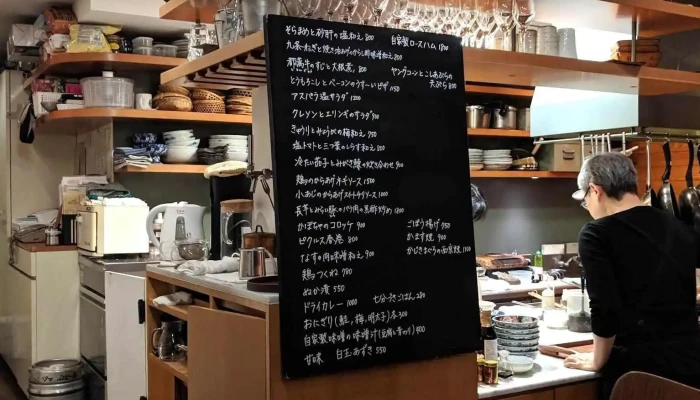 そらまめと砂肝の塩和え 800
自家製ロースハム 1200
九条ねぎと焼き油あげのからし酢味噌和え 800
都萬牛のすじと大根煮 800
ヤングコーンとこしあぶらの天ぷら 800
とうもろこしとベーコンのうすーいピザ 1150
アスパラ塩サラダ 1200
クレソンとエリンギのサラダ 900
きゅうりとみょうがの梅和え 750
塩トマトと三つ葉のしらす和え 800
冷たい茄子とみがき鰊の炊き合わせ 900
鶏のからあげネギソース 1500
小あじのからあげスイートチリソース 1000
長芋とみらい豚のバラ肉の黒酢炒め 1800
かぼちゃのコロッケ 900
ごぼう揚げ 750
ピクルス香港 800
かます焼 900
なすの肉味噌和え 900
かじきまぐろの西京焼 1300
鶏つくね 980
ぬか漬 550
ドライカレー 1000
七分づきごはん 280
おにぎり(鮭,梅,明太子)各300
自家製味噌の味噌汁(豆腐と青のり) 400
甘味 白玉あずき 550